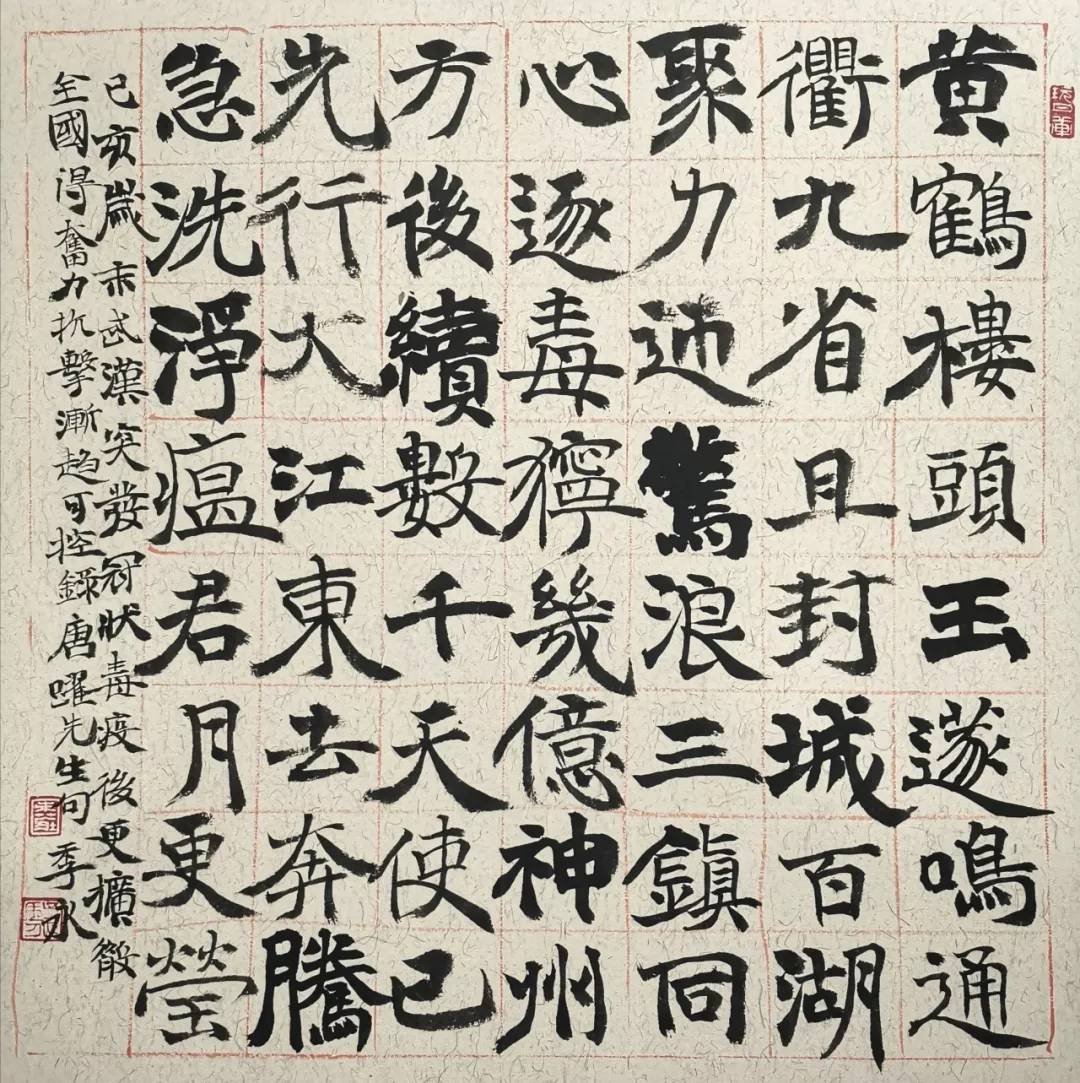 黄鶴樓頭玉邃鳴通
衢九省且封城百湖
聚力迊驚浪三鎮同
心逐毒獰幾億神州
方後續數千天使已
先行大江東去奔騰
急洗淨瘟君月更瑩
己亥歲末武漢突發冠狀毒疫後更擴散
全國得奮力抗擊漸趋可控錄唐曜先生句季永